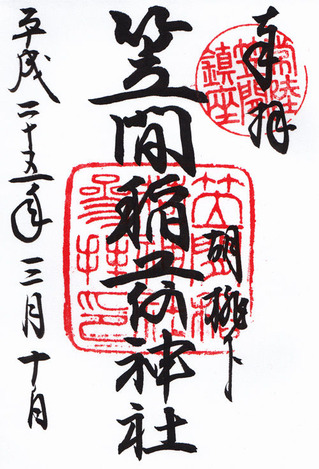 奉拝
常陸
笠間
鎮座
胡桃下
笠間稲荷神社
笠間稲
荷神社
参拝印
平成二十五年三月十日